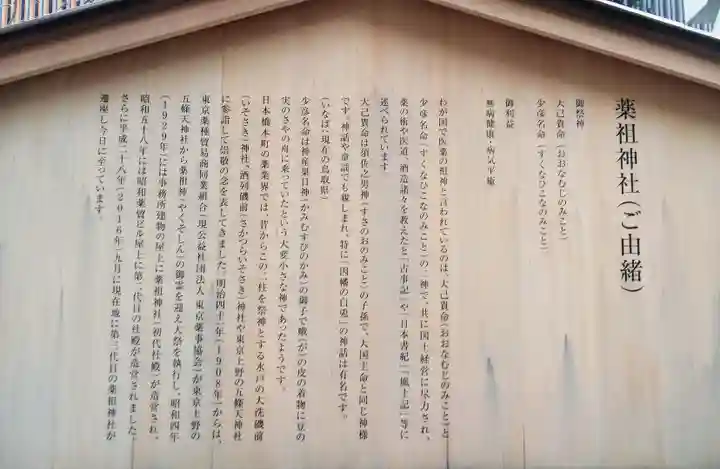 薬祖神社(ご由緒)
御祭神
大己貴命(おおなむじのみこと)
少彦名命(すくなひこなのみこと)
御利益
無病健康・病気平癒
わが国で医薬の祖神と言われているのは、大己貴命(おおなむじのみこと)と
少彦名命(すくなひこなのみこと)の二神で、共に国土経営に尽力され、
薬の術や医道、酒造諸々を教えたと「古事記」や「日本書紀」「風土記」等に
述べられています
大己貴命は須佐之男神(すさのおのみこと)の子孫で、大国主命と同じ神様
です。神話や童話でも親しまれ、特に「因幡の白兎」の神話は有名です。
(いなば:現在の鳥取県)
少彦名命は神産巣日神(かみむすびのかみ)の御子で蛾(が)の皮の着物に豆の
実のさやの舟に乗っていたという大変小さな神であったようです。
日本橋本町の薬業界では、昔からこの二柱を祭神とする水戸の大洗磯前
(いそさき)神社、酒列磯前(さかつらいそさき)神社や東京上野の五條天神社
に参詣して崇敬の念を表してきました。明治四十一年(1908年)からは、
東京薬種貿易商同業組合(現公益社団法人東京薬事協会)が東京上野の
五條天神社から薬祖神(やくそしん)の御霊を迎え大祭を執行し、昭和四年
(1929年)には事務所建物の屋上に薬祖神社(初代社殿)が造営され、
昭和五十八年には昭和薬貿ビル屋上に第二代目の社殿が造営されました。
さらに平成二十八年(2016年)九月に現在地に第三代目の薬祖神社が
遷座し今日に至っています。